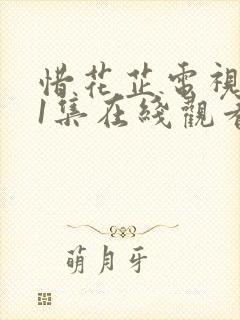 惜花芷電視
1集在綫觀看
萌月牙